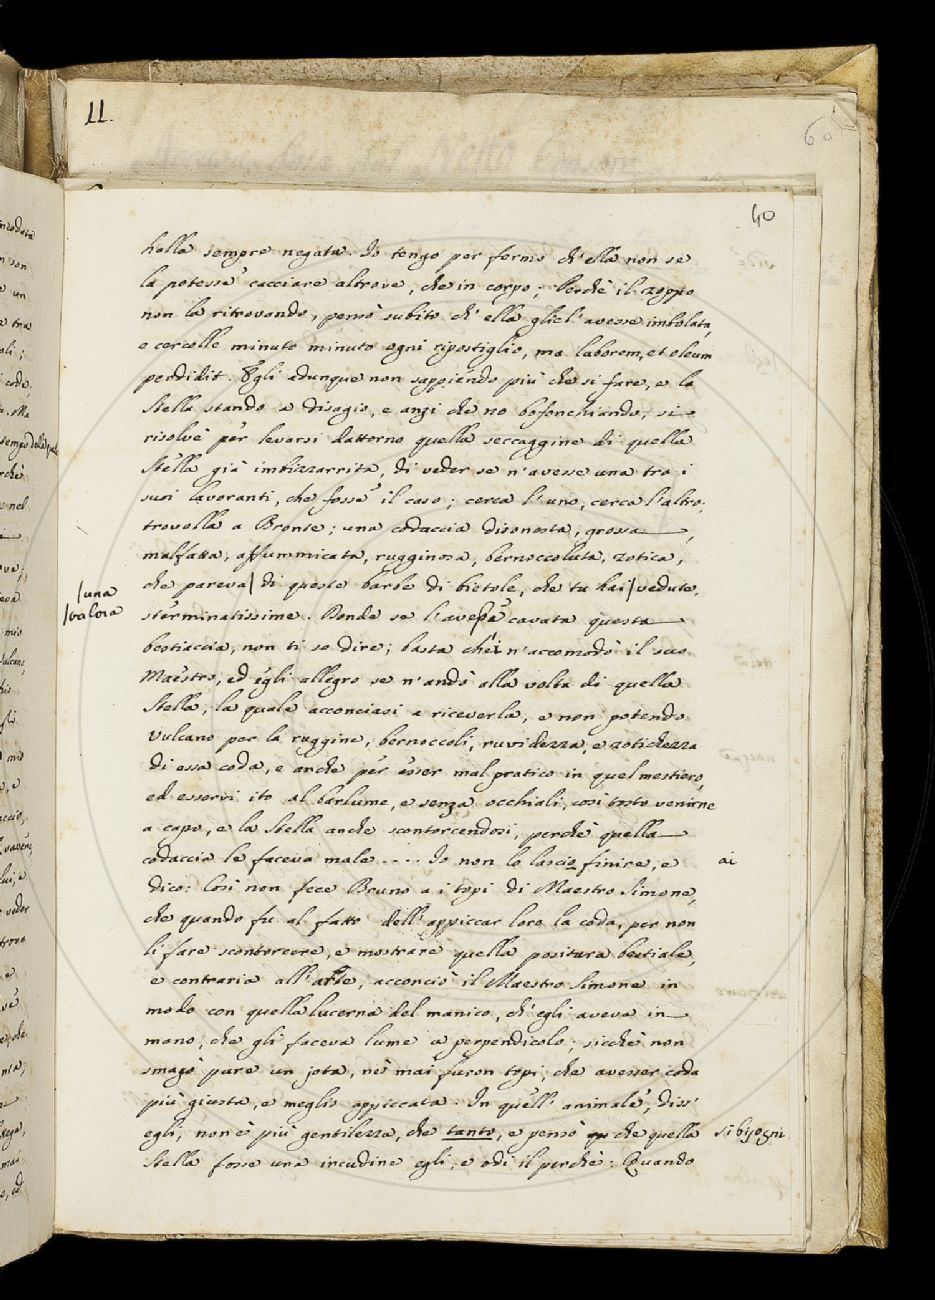 11.
60
40
holla sempre negata. Io tengo per fermo ch'ella non se
la potesse cacciare altrove, che in corpo; Perchè il zoppo
non la ritrovando, pensò subito ch'ella gliel'avesse imbolata,
e cercolle minuto minuto ogni ripostiglio, ma laborem, et oleum
perdidit. Egli adunque non sappiendo più che si fare, e la
Stella stando a disagio, e anzi che no bofonchiando, si
risolvè per levarsi dattorno quella seccaggine di quella
Stella già imbizzarrita, di veder se n'avesse una tra i
suoi lavoranti, che fosse il caso; cerca l'uno, cerca l'altro,
trovolla a Bronte; una codaccia disonesta, grossa,
malfatta, affummicata, rugginosa, bernoccoluta, zotica,
che pareva/ di queste barbe di bietole, che tu hai/ vedute,
/una
/valora
sterminatissime. Donde se l'avesse cavata questa
bestiaccia, non ti so dire; basta chei n'accomodò il suo
Maestro, ed egli allegro se n'andò alla volta di quella
Stella, la quale acconciasi a riceverla, e non potendo
Vulcano per la ruggine, bernoccoli, ruvidezza, e zotichezza
di essa coda, e anche per esser mal pratico in quel mestiero,
ed esservi ito al barlume, e senza occhiali, così tosto venirne
a capo, e la Stella anche scontorcendosi, perchè quella
codaccia le faceva male.... Io non lo lascio finire, e
ai
dico: Così non fece Bruno a i topi di Maestro Simone,
che quando fu al fatto dell'appiccar loro la coda, per non
li fare scontorcere, e mostrare quella positura bestiale,
e contraria all'arte, acconciò il Maestro Simone in
modo con quella lucerna del manico, ch'egli aveva in
mano, che gli faceva lume a perpendicolo; sicchè non
smagò pure un jota, nè mai furon topi, che avesser coda
più giusta, e meglio appiccata. In quell'animale, diss'
egli, non è più gentilezza, che tanto, e pensò che quella
si bisogni
Stella fosse una incudine egli, e odi il perchè: Quando